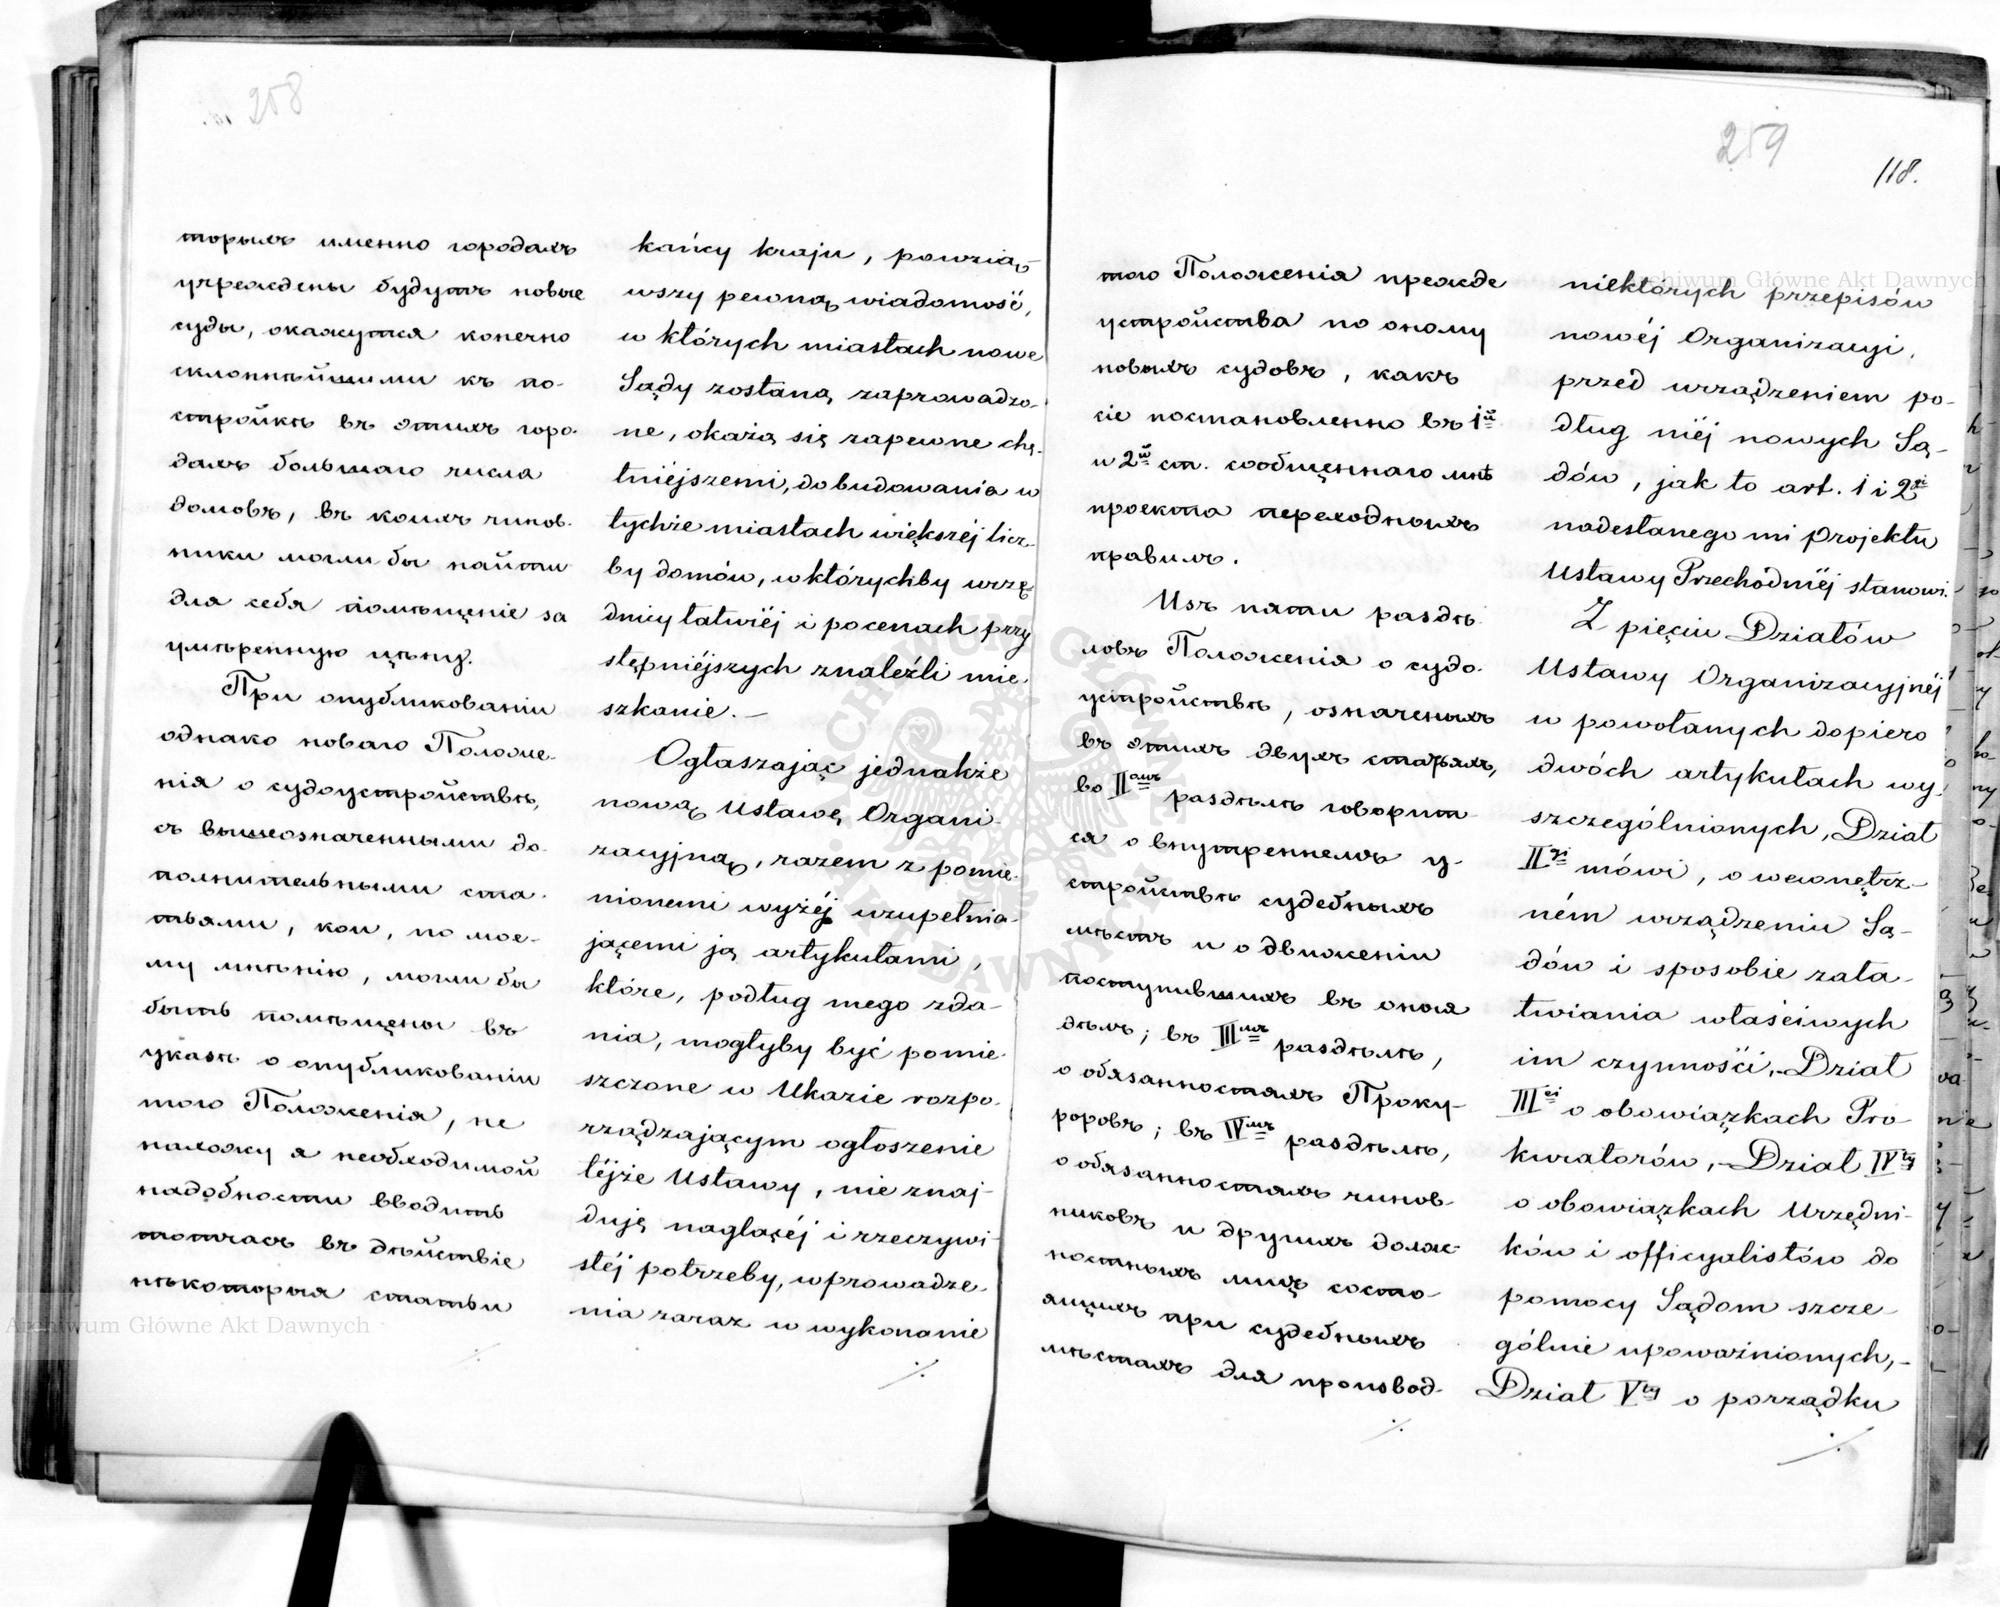 258
торыхъ именно городахъ
учреждены будутъ новые
суды, окажутся конечно
склоннѣйшими къ по-
стройкѣ въ этихъ горо-
дахъ большаго числа
домовъ, въ коихъ чинов-
ники могли бы найти
для себя помѣщеніе за
умѣренную цѣну.
При опубликованіи
однако новаго Положе-
нія о судоустройствѣ,
съ вышеозначенными до-
полнительными ста-
тьями, кои, по мое-
му мнѣнію, могли бы
быть помѣщены въ
указѣ о опубликованіи
того Положенія, не
нахожу я необходимой
надобности вводить
тотчасъ въ дѣйствіе
нѣкоторыя статьи
kańcy kraju, powzią-
wszy pewną wiadomość,
w których miastach nowe
Sądy zostaną zaprowadzo-
ne, okażą się zapewne chę-
tniéjszemi, do budowania w
tychże miastach większéj licz-
by domów, w którychby urzę-
dnicy łatwiéj i po cenach przy
stępniéjszych znaleźli mie-
szkanie.—
Ogłaszając jednakże
nową Ustawę Organi-
zacyjną, razem z pomie-
nionemi wyżéj uzupełnia-
jącemi ją artykułami,
które, podług mego zda-
nia, mogłyby być pomie-
szczone w Ukazie rozpo-
rządzającym ogłoszenie
téjże Ustawy, nie znaj-
duję naglącéj i rzeczywi-
stéj potrzeby, wprowadze-
nia zaraz w wykonanie
./.
259
118.
того Положенія прежде
устройства по оному
новыхъ судовъ, какъ
сіе постановлено въ 1й
и 2й ст. сообщеннаго мнѣ
проекта переходныхъ
правилъ.
Изъ пяти раздѣ-
ловъ Положенія о судо-
устройствѣ, означеныхъ
въ этихъ двухъ статьяхъ,
во IIомъ раздѣлѣ говорит-
ся о внутреннемъ у-
стройствѣ судебныхъ
мѣстъ и о движеніи
поступившихъ въ оныя
дѣлъ; въ IIIмъ раздѣлѣ,
о обязанностяхъ Проку-
роровъ; въ IVмъ раздѣлѣ,
о обязанностяхъ чинов-
никовъ и другихъ долж-
ностныхъ лицъ состо-
ящихъ при судебныхъ
мѣстахъ для производ-
./.
niektórych przepisów
nowéj Organizacyi,
przed urządzeniem po-
dług niéj nowych Są-
dów, jak to art. 1 i 2gi
nadesłanego mi projektu
Ustawy Przechódniéj stanowi.
Z pięciu Działów
Ustawy Organizacyjnéj
w powołanych dopiero
dwóch artykułach wy-
szczególnionych, Dział
IIgi mówi, o wewnętrz-
ném urządzeniu Są-
dów i sposobie zała-
twiania właściwych
im czynności,—Dział
IIIci o obowiązkach Pro-
kuratorów,—Dział IVty
o obowiązkach Urzędni-
ków i officyalistów do
pomocy Sądom szcze-
gólnie upoważnionych,—
Dział Vty o porządku
./.
Archiwum Główne Akt Dawnych
Archiwum Główne Akt Dawnych